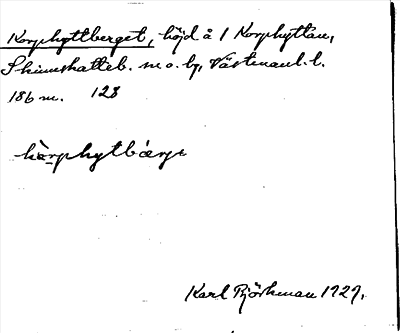 Korphyttberget, höjd å 1 Korphyttan,
Skinnskatteb. sn o. bg, Västmanl. l.
186 m. 128
kòrphytbærje
Karl Björkman 1929.